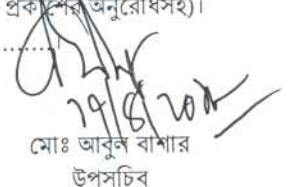 প্রকাশের অনুরোধসহ)।
মোঃ আবুল বাশার
উপসচিব